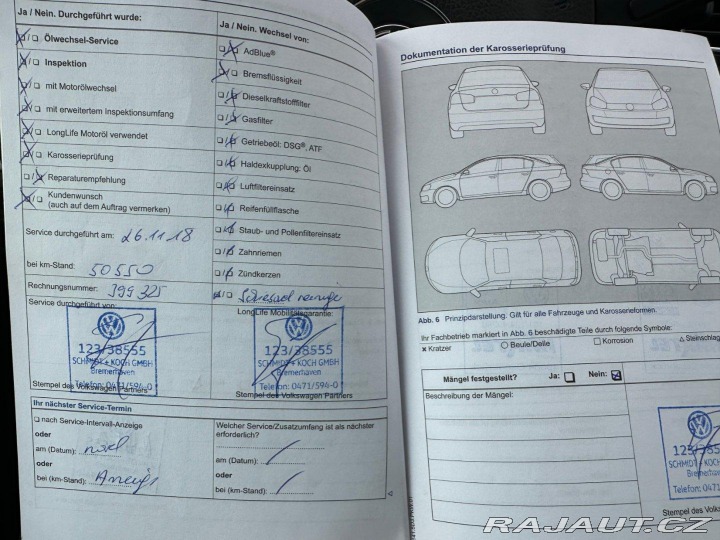 Ja / Nein. Durchgeführt wurde:
Ölwechsel-Service
Inspektion
mit Motorölwechsel
mit erweitertem Inspektionsumfang
LongLife Motoröl verwendet
Karosserieprüfung
Reparaturempfehlung
Kundenwunsch
(auch auf dem Auftrag vermerken)
Service durchgeführt am: 26.11.18
bei km-Stand: 50550
Rechnungsnummer: 399325
Service durchgeführt von:
123/38555
SCHMIDT + KOCH GMBH
Bremerhaven
Telefon: 0471/594-0
Stempel des Volkswagen Partners
Ihr nächster Service-Termin
nach Service-Intervall-Anzeige
oder
am (Datum):
oder
bei (km-Stand):
Ja / Nein. Wechsel von:
AdBlue®
Bremsflüssigkeit
Dieselkraftstofffilter
Gasfilter
Getriebeöl: DSG®, ATF
Haldexkupplung: Öl
Luftfiltereinsatz
Reifenfüllflasche
Staub- und Pollenfiltereinsatz
Zahnriemen
Zündkerzen
LongLife Mobilitätsgarantie:
123/38555
SCHMIDT + KOCH GMBH
Bremerhaven
Telefon: 0471/594-0
Stempel des Volkswagen Partners
Welcher Service/Zusatzumfang ist als nächster
erforderlich?
am (Datum):
oder
bei (km-Stand):
Dokumentation der Karosserieprüfung
Abb. 6 Prinzipdarstellung. Gilt für alle Fahrzeuge und Karosserieformen.
Ihr Fachbetrieb markiert in Abb. 6 beschädigte Teile durch folgende Symbole:
x Kratzer ○ Beule/Delle □ Korrosion △ Steinschlag
Mängel festgestellt? Ja: Nein:
Beschreibung der Mängel:
123/38555
SCHMIDT + KOCH
Bremerhaven
Telefon: 0471
Stempel des Volks
RAJAUT.CZ